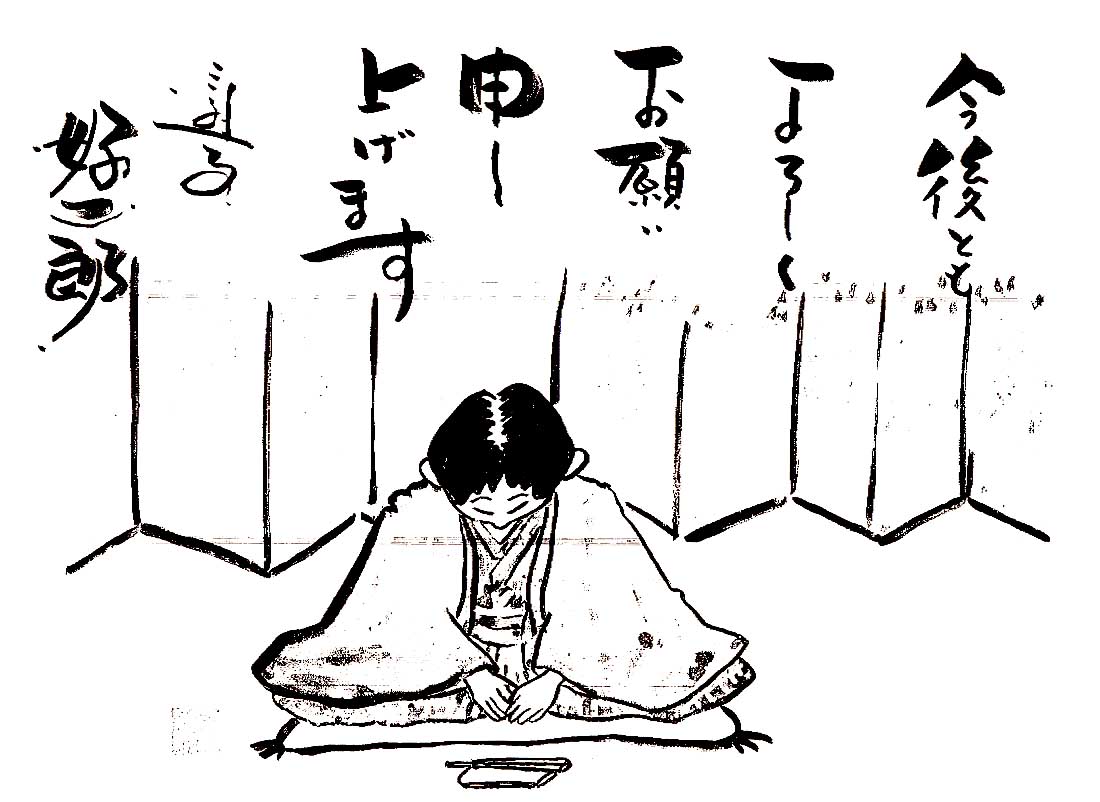 今後とも
よろしく
お願い
申し
上げます
好二郎